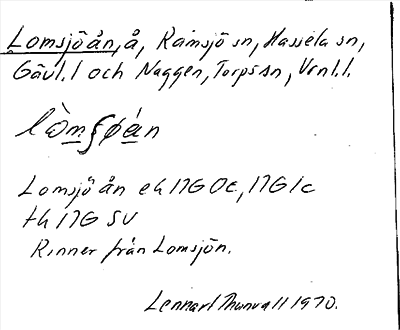 Lomsjöån, å, Ramsjö sn, Hassela sn,
Gävl.l och Naggen, Torps sn, Vrnl.l.
lòmʃøán
Lomsjöån ek 17G 0c, 17G 1c
tk 17G SV
Rinner från Lomsjön.
Lennart Thunvall 1970.